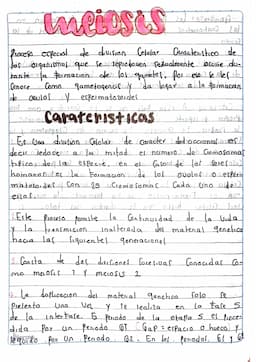 meiosis
Proceso especial de division Celular Caracteristico de
los organismos que se reproducen sexualmente ocurre du-
rante la formacion de los gametos, Por eso se les
Conoce Como gametogenesis y da lugar a la formacion
de ovulos y espermatozoides
Carateristicas
Es Una division Celular de caracter
decir reduce a la mitad el numero de Cromosomas
de la especie, en el Caso de los seres
humanos es la Formacion de los ovulos o espermá
Con 23 Cromosomas Cada uno de
ellos
Este Proceso permite la Continuidad de la Vida
y la transmicion inalterada del material genetico
hacia las siguientes generaciones
Consta de dos diviciones sucesivas Conocidas Co
mo meiosis 1 y meiosis 2
La duplicacion del material genetico solo se
Presenta Una Vez y se realiza en la fase S
de la interfase. El periodo de la etapa S es Prece
dida Por un Periodo G1 (Gap = espacio o hueco) y
seguido Por un Periodo G2. En los periodos G1 y G2